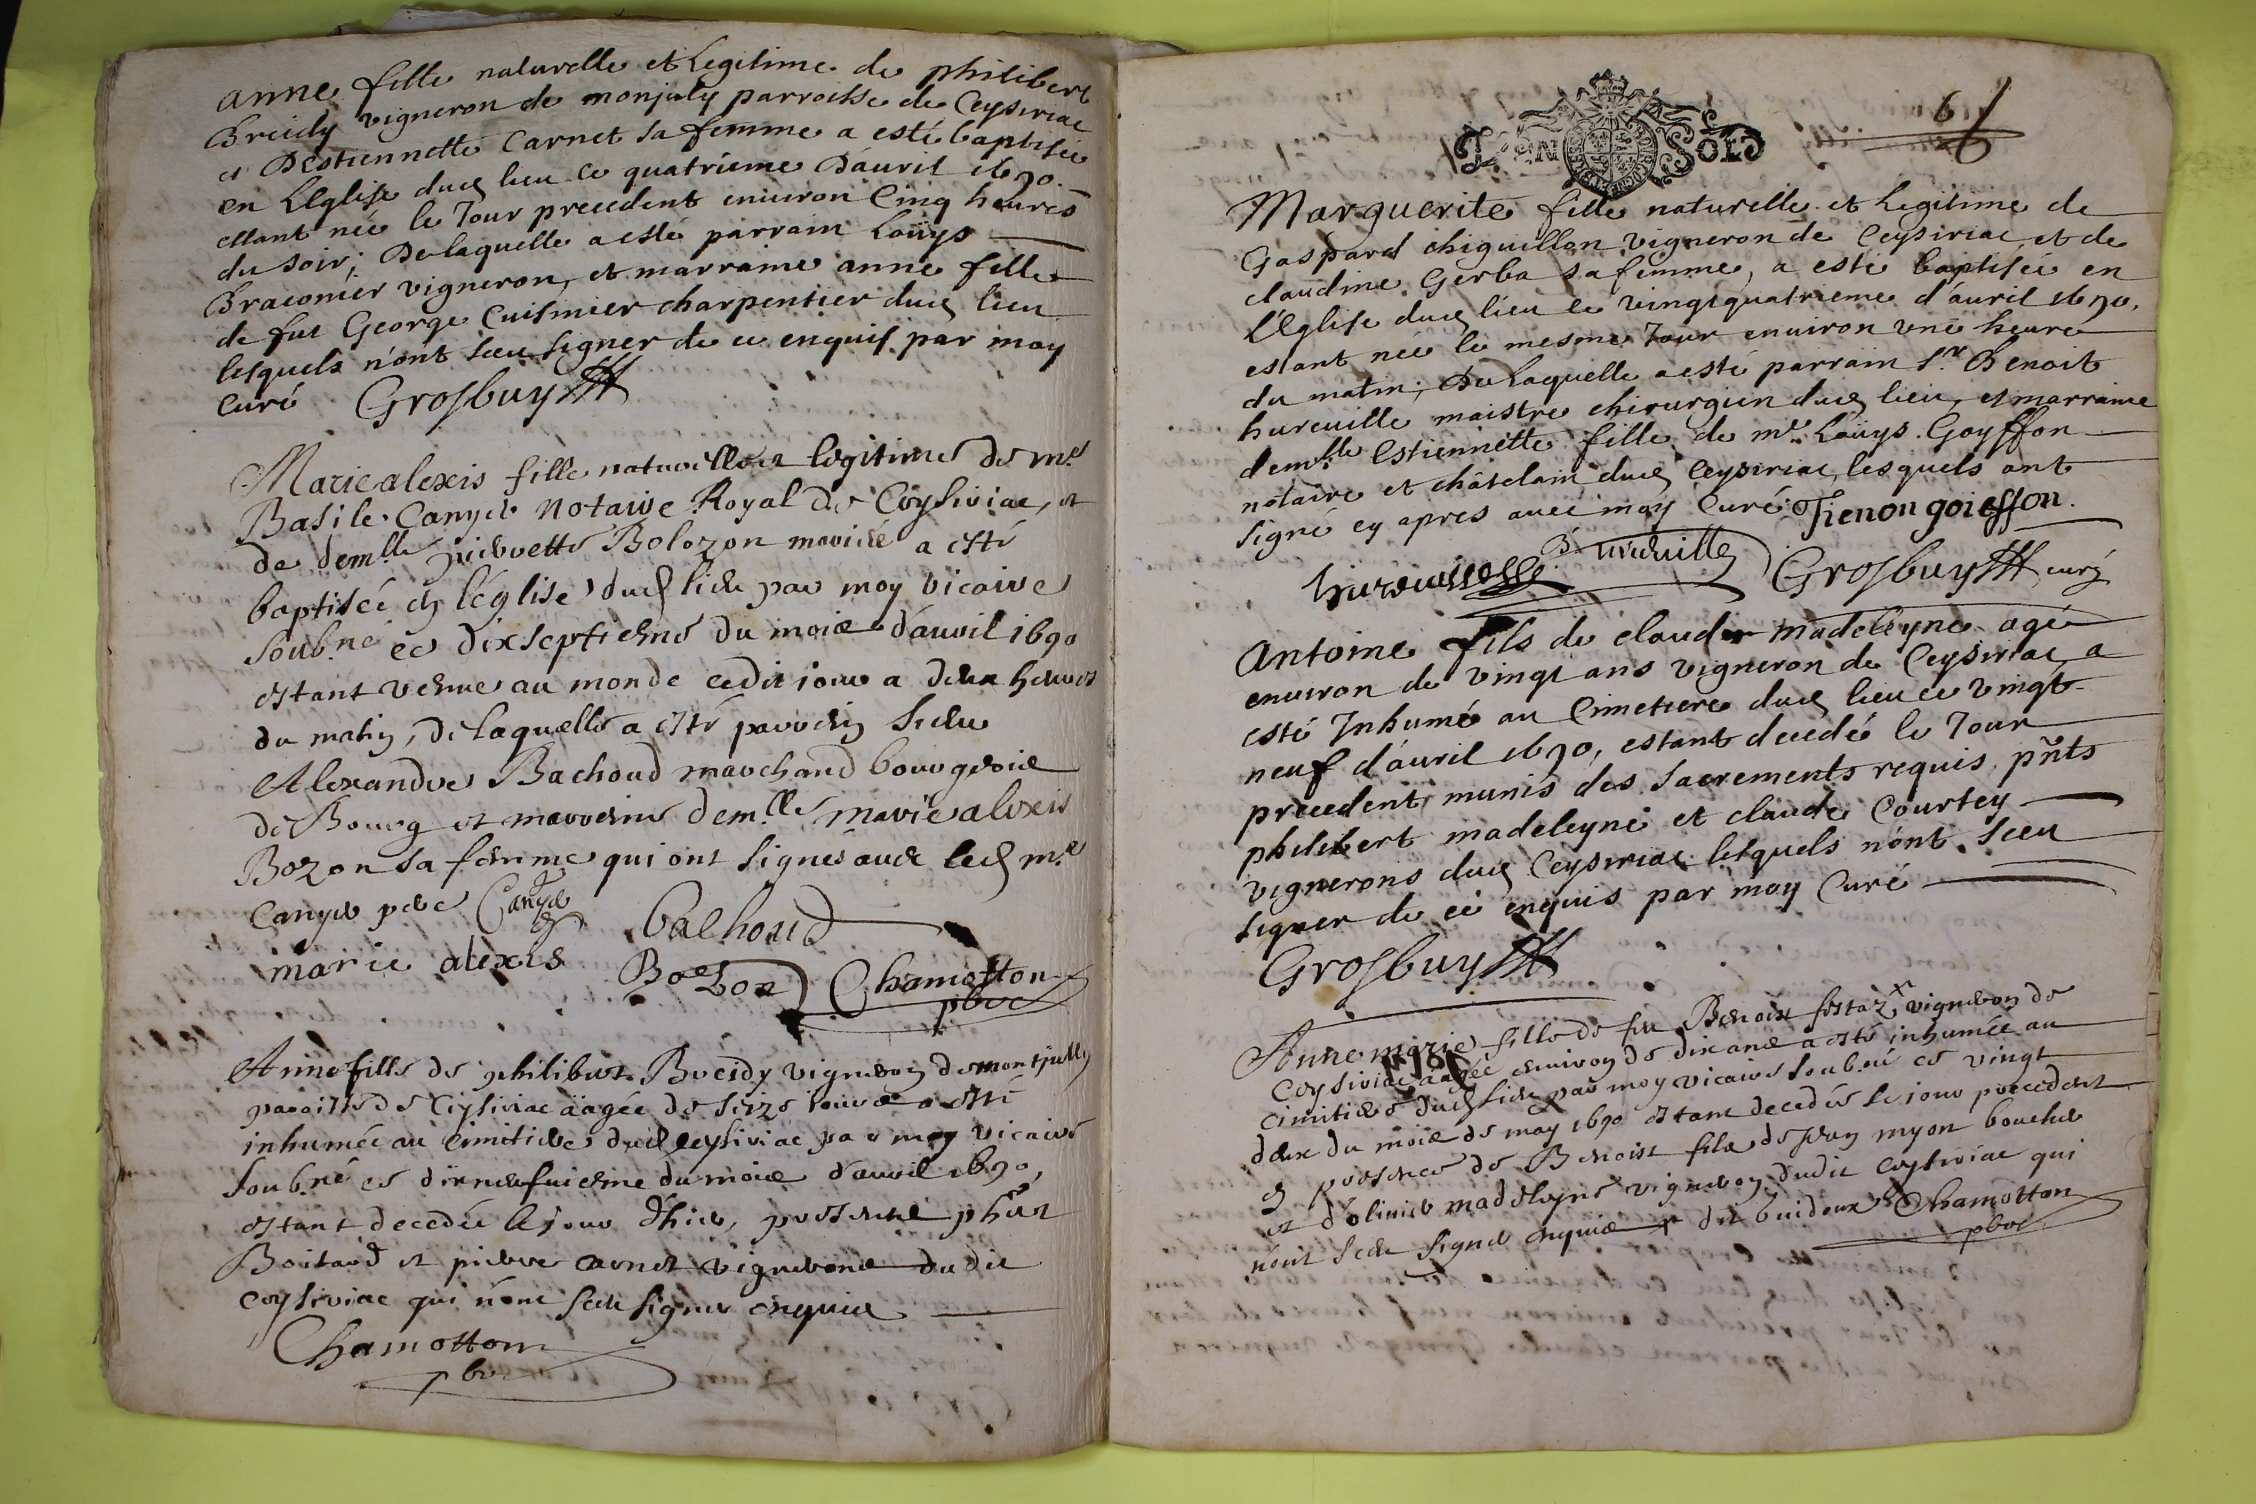 anne fille naturelle et Legitime de philibert
Breidy vigneron de monjuly parroisse de Ceysiriac
et Destiennette Carnet sa femme a esté baptisée
en LEglise dud lieu ce quatrieme D'auril 1690.
estant née le Jour precedent enuiron Cinq heures
du soir; De laquelle a esté parrain Louÿs
Braconier vigneron, et marraine anne fille
de fut George Cuisinier charpentier dud lieu
lesquels n'ont sceu signer de ce enquis par moy
Curé Grosbuy
Marie alexis fille naturelle et legitime de me
Basile Canyer Notaire Royal de Ceysiriac, et
de demlle pierrette Bolozon mariée a esté
baptisée en l'église dud lieu par moy vicaire
soub.né ce dixseptiesme du mois d'auril 1690
estant venue au monde cedit iour a deux heures
du matin, de laquelle a esté parrein sieur
Alexandre Bachoud marchand bourgeois
de Bourg et marreine demlle marie alexis
Bozon sa femme qui ont signés auec led me
Canyer pere Canyer Bachoud
marie alexis Boezon Chamotton
pbre
Anne fille de philibert Breidy vigneron de montjully
paroisse de Ceysiriac aagée de seize iours a esté
inhumée au cimitiere dud Ceysiriac par moy vicaire
soub.né ce dixneufuiesme du mois d'auril 1690,
estant decedée le jour d'hier, presence phert
Boitard et pierre Carnet vignerons dudit
Ceysiriac qui n'ont sceu signer enquis
Chamotton
pbre
6
Marguerite fille naturelle et Legitime de
Gaspard chiquillon vigneron de Ceysiriac, et de
claudine Gerba sa femme, a esté baptisée en
l'Eglise dud lieu ce vingtquatrieme d'auril 1690.
estant née le mesme Jour enuiron vne heure
du matin; De Laquelle a esté parrain Sr. Benoit
hureuille maistre chirurgien dud lieu, et marraine
demlle Estiennette fille de me Louÿs Goyffon
notaire et châtelain dud Ceysiriac, lesquels ont
signé cy apres auec moy Curé Tienon goieffon.
B hureuille Grosbuy curé
Antoine fils de claude madeleyne agé
enuiron de vingt ans vigneron de Ceysiriac a
esté Inhumé au Cimetiere dud lieu ce vingt
neuf d'auril 1690, estant decedé le Jour
precedent, munis des sacrements requis, pnts
philibert madeleyne et claude Courtey
vignerons dud Ceysiriac lesquels n'ont sceu
signer de ce enquis par moy Curé
Grosbuy
Anne marie fille de feu Benoist vigneron de
Ceysiriac aagée enuiron de dix ans a esté inhumée au
cimitiere dud lieu par moy vicaire soub.né ce vingt
deux du mois de may 1690 estant decedée le jour precedent
presence de Benoist fils de Jean myon boucher
et d'oliuier madeleyne vigneron dudit Ceysiriac qui
n'ont sceu signer enquis Chamotton
pbre